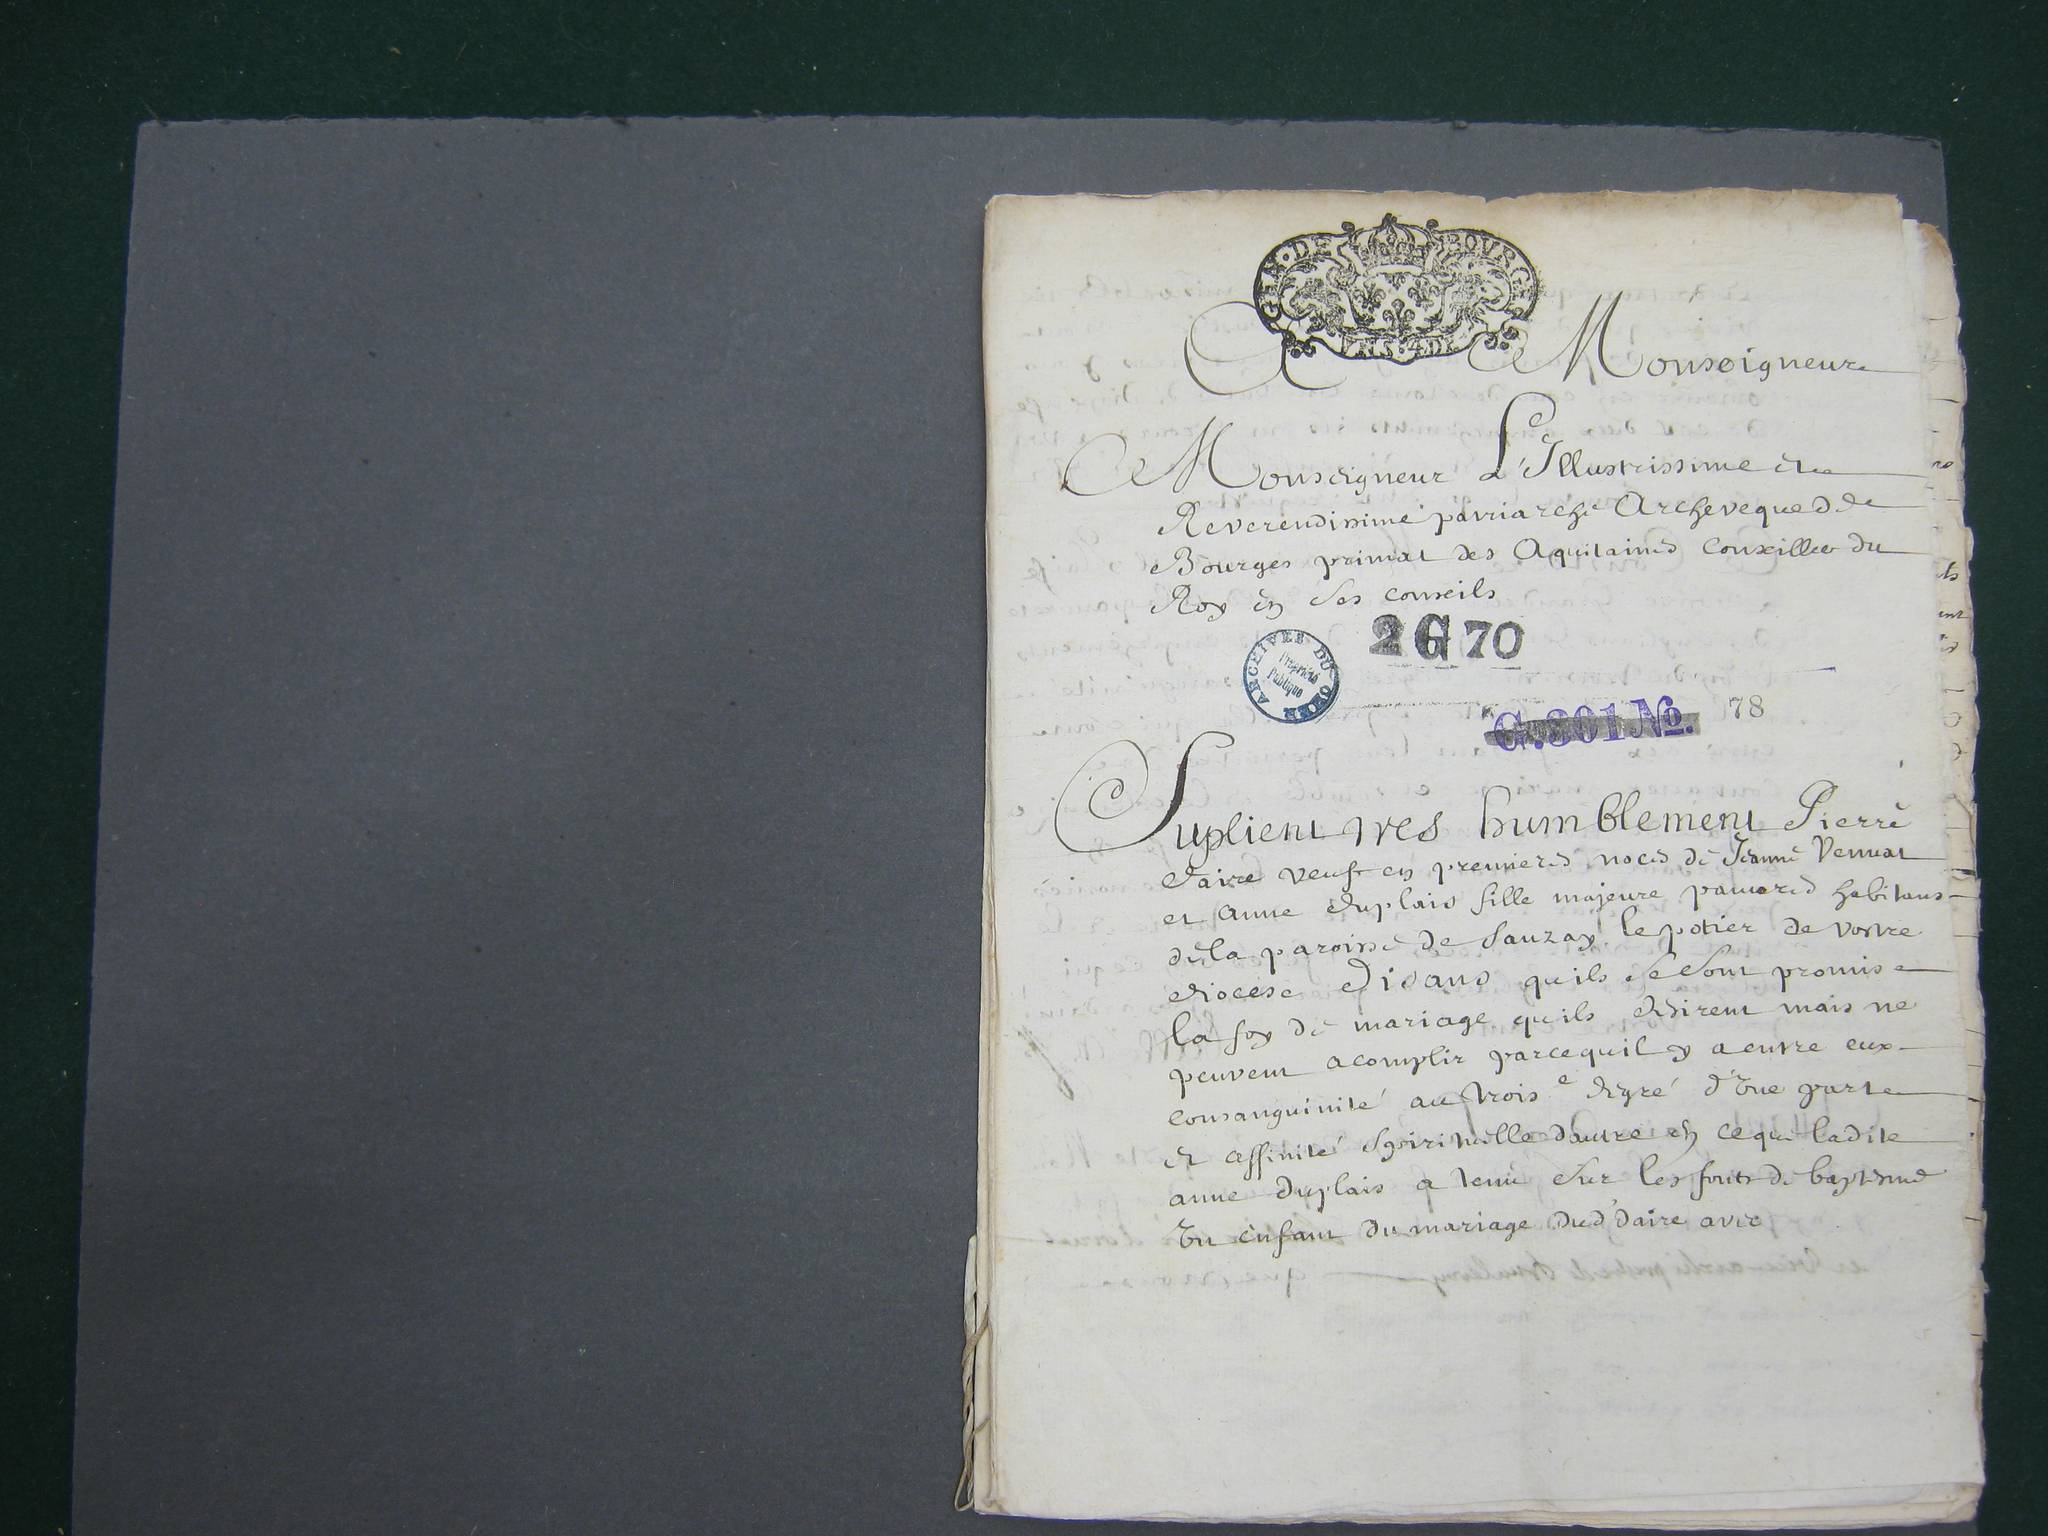 GEN·DE BOVRGES
A Monseigneur
Monseigneur L'Illustrissime et
Reverendissime patriarche Archeveque de
Bourges primat des Aquitaines Conseiller du
Roy en ses conseils
2 G 70
ARCHIVES DU CHER
Propriété
Publique
G. 301 No. 78
Suplient tres humblement Pierre
daire veuf en premieres noces de Jeanne Venuat
et anne duplais fille majeure pauvres habitans
de la paroisse de Sauzay le potier de vostre
diocese disans quils se sont promis
la foy de mariage quils desirent mais ne
peuvent acomplir parcequil y a entre eux
consanguinité au trois e degré d'une part
et affinité spirituelle dautre en ce que ladite
anne duplais a tenu sur les fonts de baptesme
un enfant du mariage dud daire avec